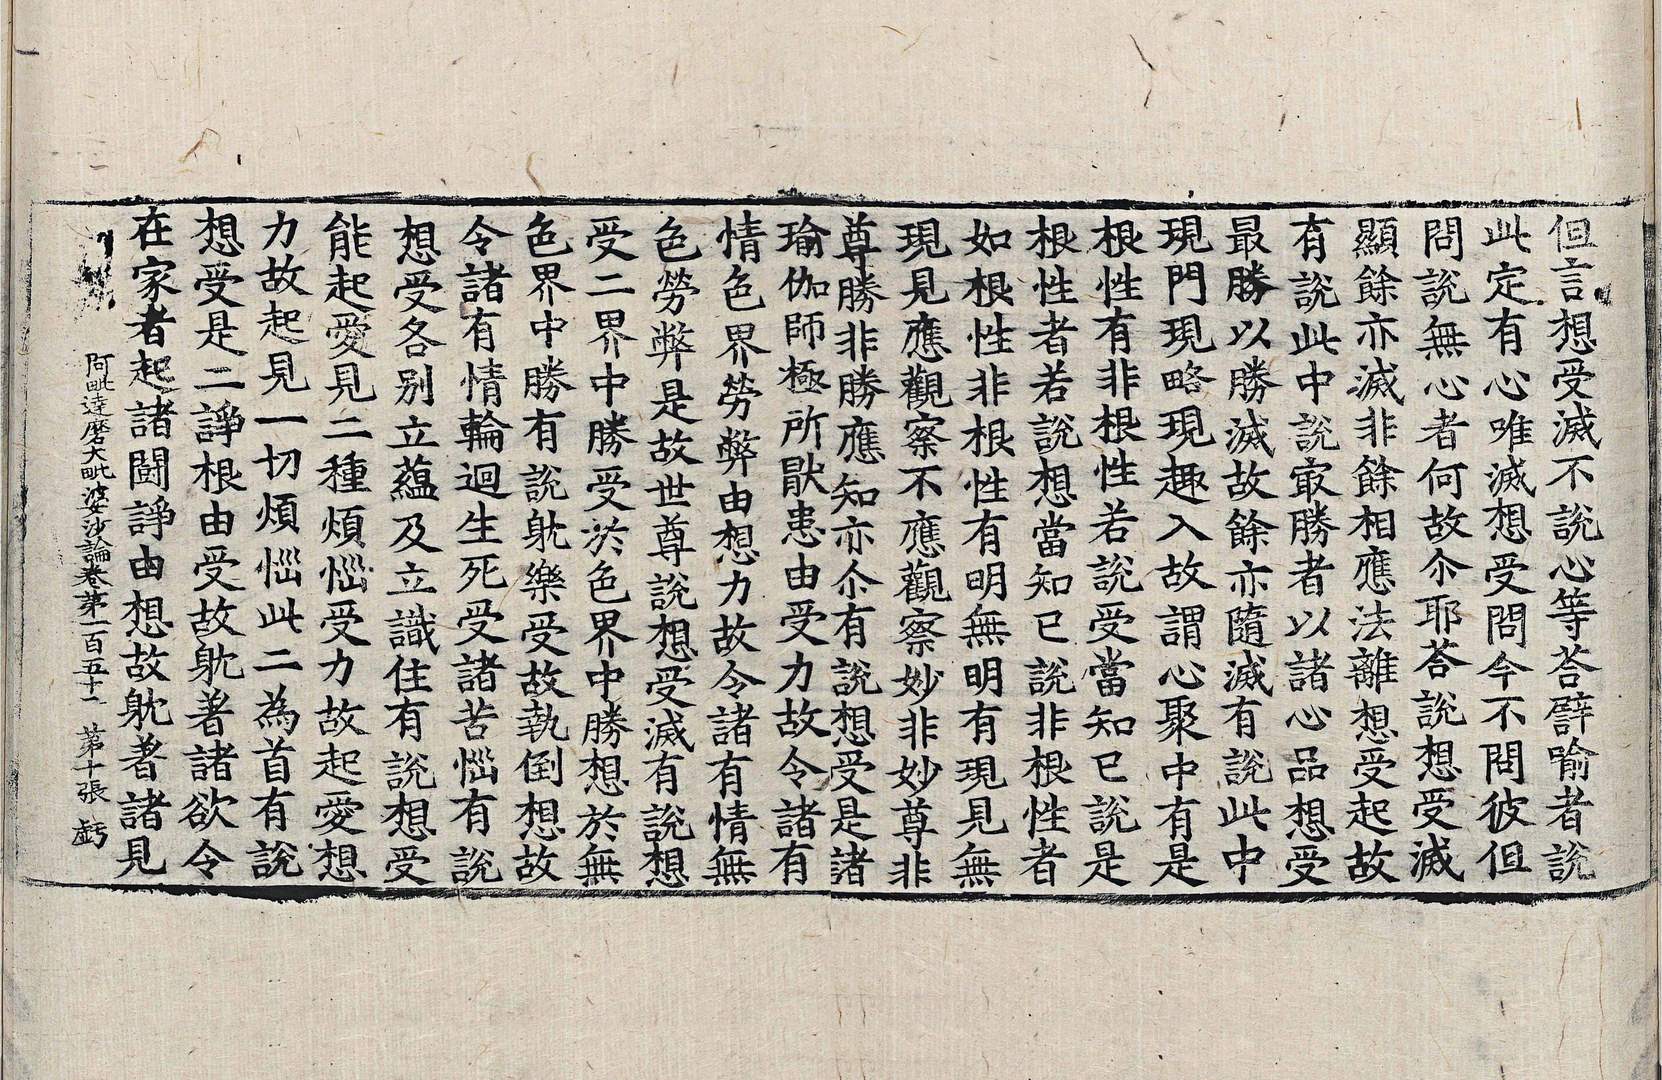 但言想受滅不說心等荅譬喻者說
此定有心唯滅想受問今不問彼但
問說無心者何故尒耶荅說想受滅
顯餘亦滅非餘相應法離想受起故
有說此中說㝡勝者以諸心品想受
最勝以勝滅故餘亦隨滅有說此中
現門現略現趣入故謂心聚中有是
根性有非根性若說受當知已說是
根性者若說想當知已說非根性者
如根性非根性有明無明有現見無
現見應觀察不應觀察妙非妙尊非
尊勝非勝應知亦尒有說想受是諸
瑜伽師極所猒患由受力故令諸有
情色界勞弊由想力故令諸有情無
色勞弊是故世尊說想受滅有說想
受二界中勝受於色界中勝想於無
色界中勝有說躭樂受故執倒想故
令諸有情輪迴生死受諸苦惱有說
想受各別立蘊及立識住有說想受
能起愛見二種煩惱受力故起愛想
力故起見一切煩惱此二為首有說
想受是二諍根由受故躭著諸欲令
在家者起諸鬪諍由想故躭著諸見
阿毗達磨大毗婆沙論卷第一百五十二 第十張 虧